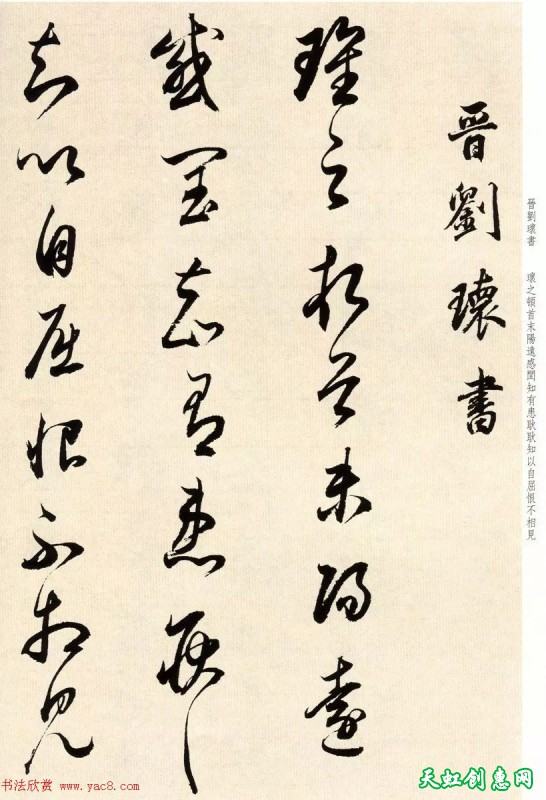 晉劉瓌書
瓌之頓首末陽遠
感閏知有患耿耿
知以自屈恨不相見
晉劉瓌書 瓌之頓首末陽遠感閏知有患耿耿知以自屈恨不相見
书法欣赏 www.yac8.com
天虹创惠网